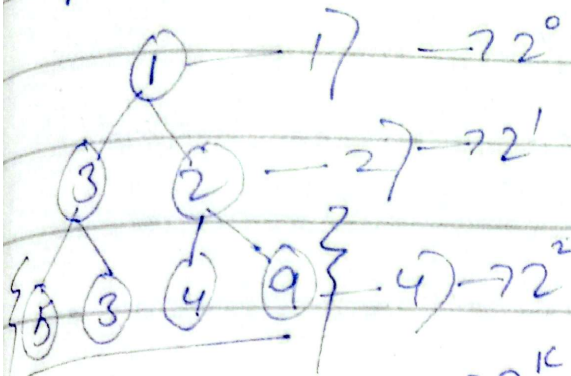 1 — 1) → 2⁰
3 2 — 2) → 2¹
{ 5 3 4 9 } — 4) → 2²
2ᴷ